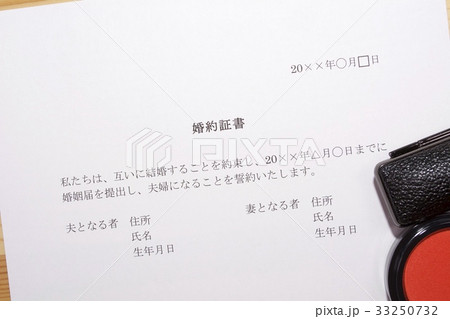 20××年○月□日
婚約証書
私たちは、互いに結婚することを約束し、20××年△月○日までに
婚姻届を提出し、夫婦になることを誓約いたします。
夫となる者 住所 妻となる者 住所
氏名 氏名
生年月日 生年月日
PIXTA
pixta.jp - 33250732